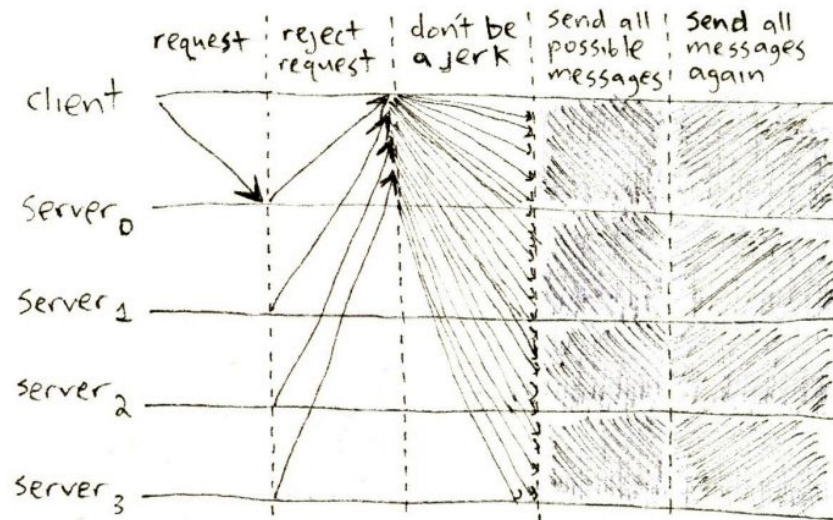 request
reject
request
don't be
a jerk
send all
possible
messages
send all
messages
again
client
server0
server1
server2
server3